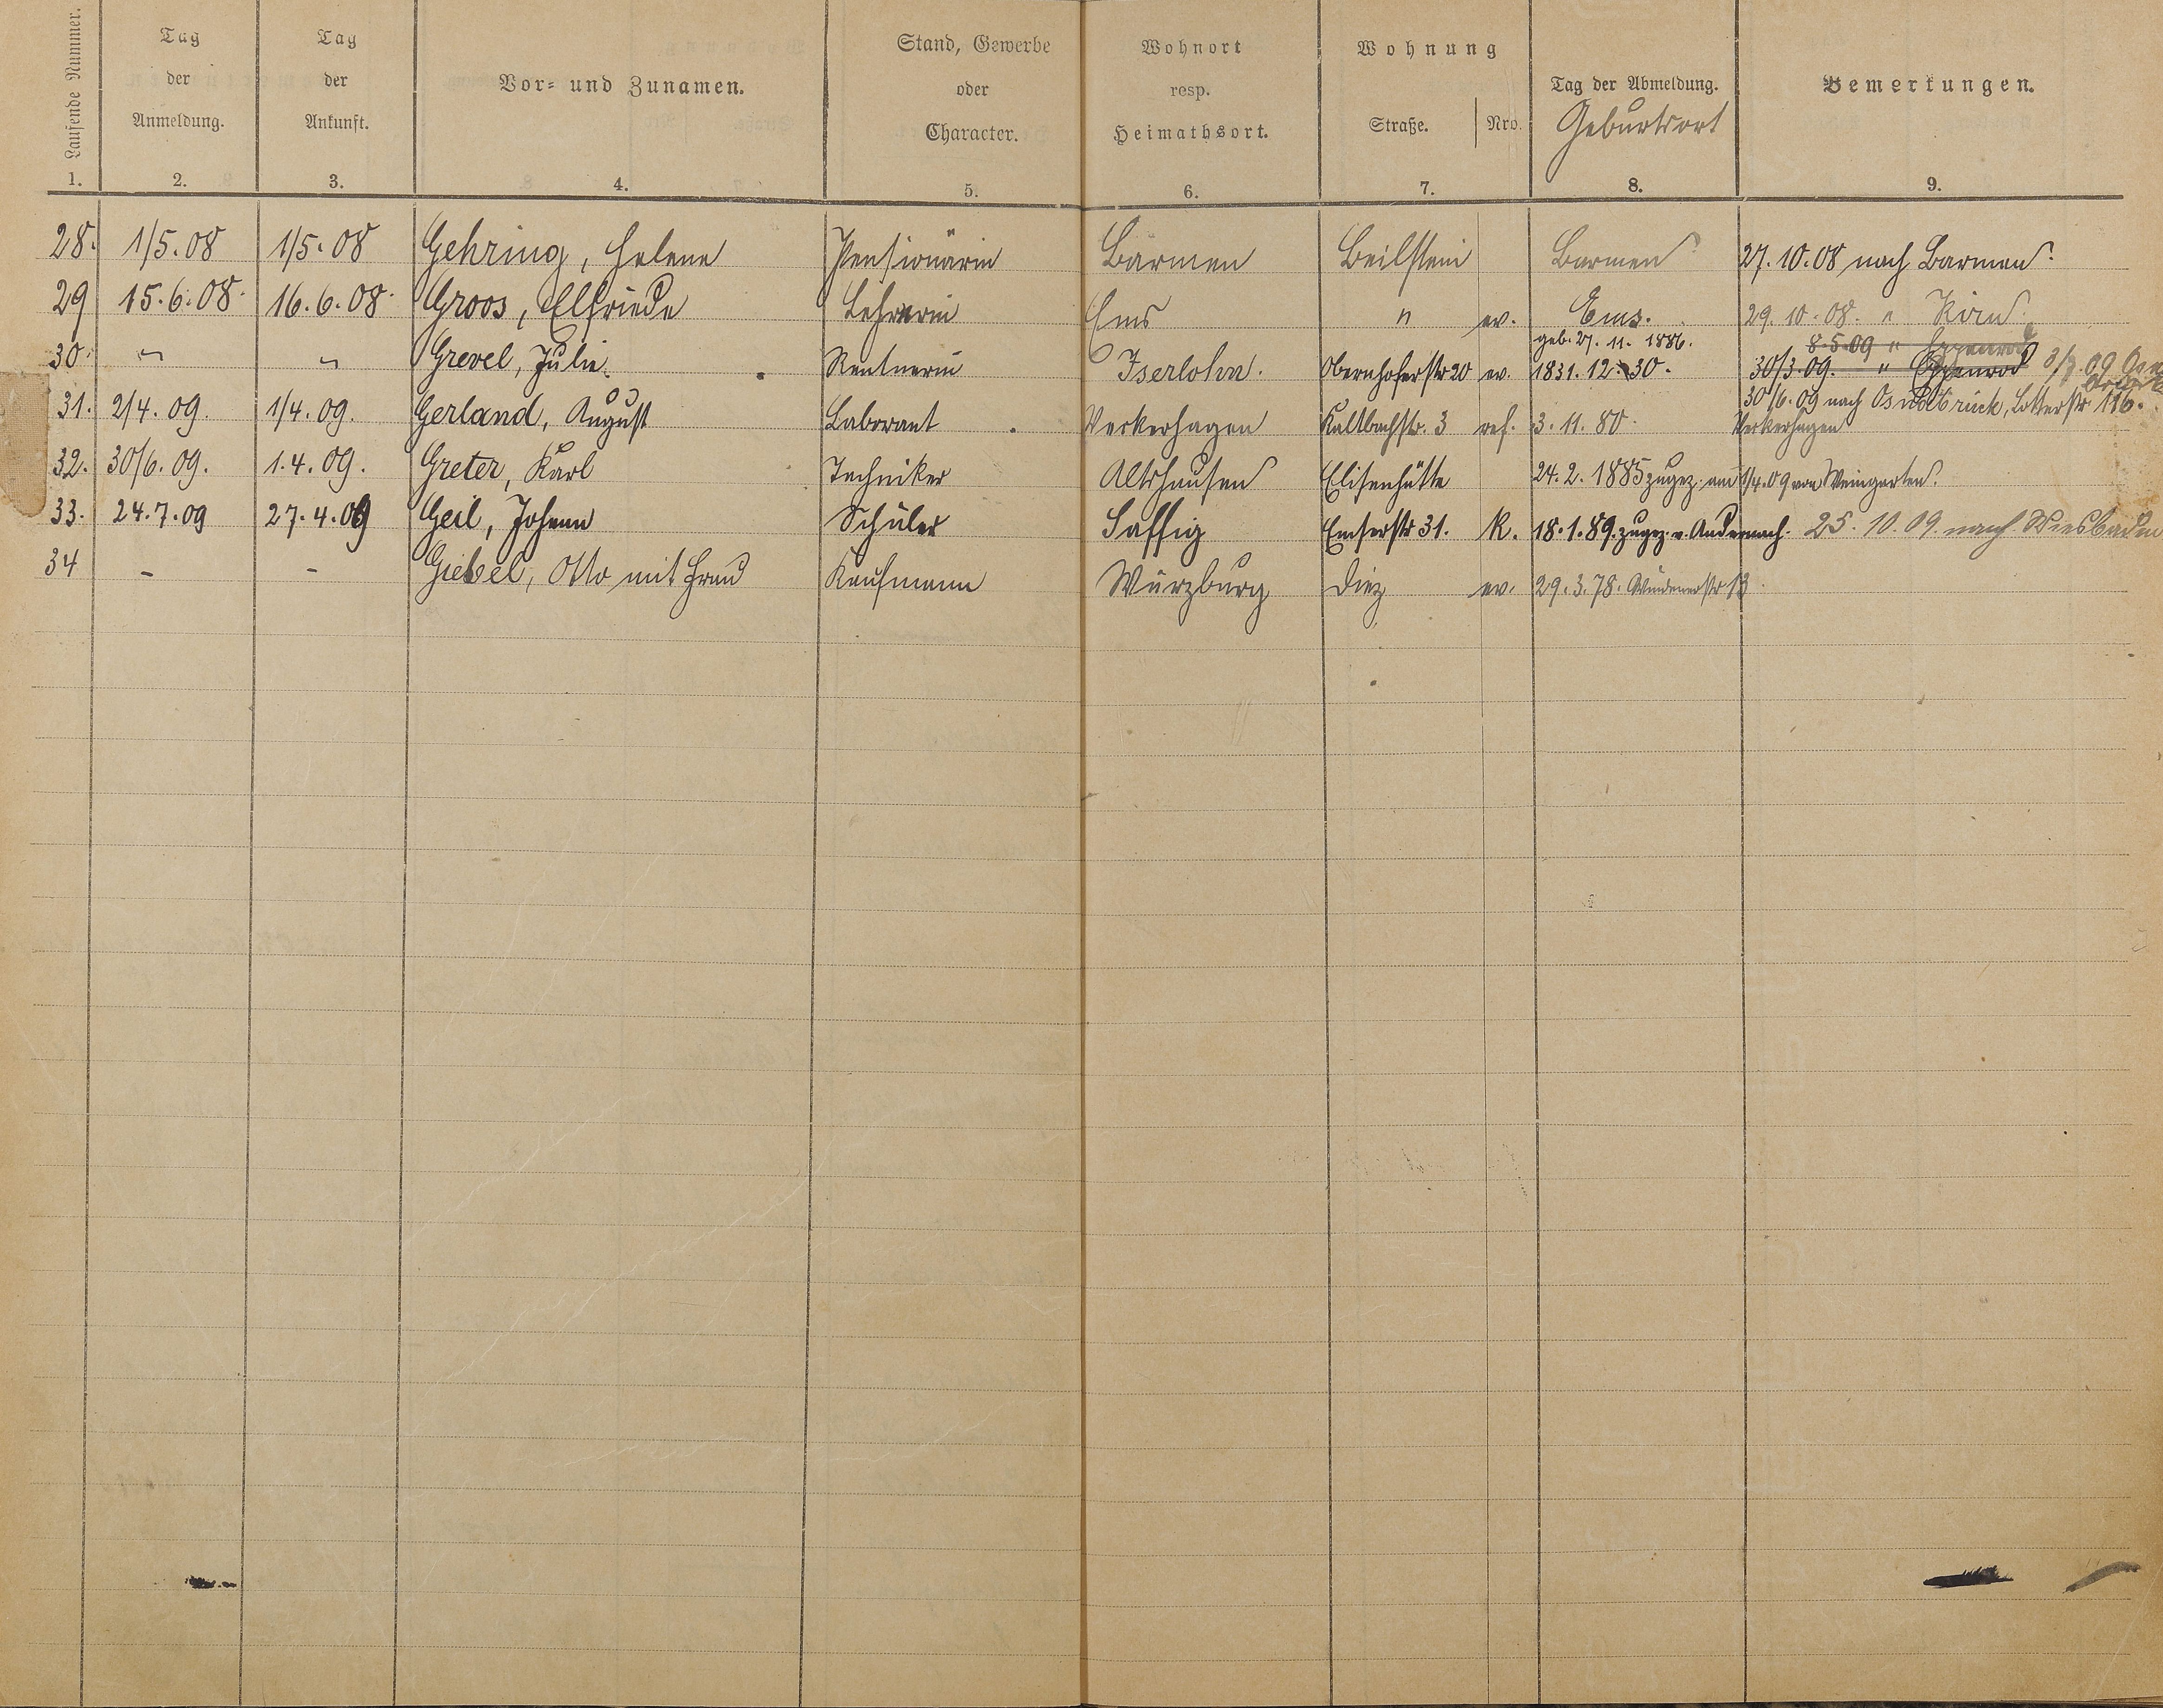 Laufende Nummer.
1.
Tag
der
Anmeldung.
2.
Tag
der
Ankunft.
3.
Vor- und Zunamen.
4.
Stand, Gewerbe
oder
Character.
5.
Wohnort
resp.
Heimathsort.
6.
Wohnung
Straße. Nro.
7.
Tag der Abmeldung.
Geburtsort
8.
Bemerkungen.
9.
28. 1/5.08 1/5.08 Gehring, Helene Pensionärin Barmen Beilstein Barmen 27.10.08 nach Barmen.
29 15.6.08. 16.6.08. Groos, Elfriede Lehrerin Ems " ev. Ems. 29.10.08. " Kirn.
geb. 27.11.1886. 8.5.09 " Eppenrod
30. " " Grevel, Julie. Rentnerin Iserlohn. Obernhoferstr 20 ev. 1831.12.30. 30/3.09. " Eppenrod 3/7.09
30/6.09 nach Osnabrück, Lotterstr 116.
31. 2/4.09. 1/4.09. Gerland, August Laborant Veckerhagen Kaltbachstr. 3 ref. 3.11.80. Veckerhagen
32. 30/6.09. 1.4.09. Greter, Karl Techniker Altshausen Elisenhütte 24.2.1885 zugez. am 1/4.09 von Weingarten.
33. 24.7.09 27.4.09 Geil, Johann Schüler Saffig Emserstr 31. K. 18.1.89. zugez. v. Andernach. 25.10.09. nach Wiesbaden
34 - - Giebel, Otto mit Frau Kaufmann Würzburg Diez ev. 29.3.78. Windenerstr 13.